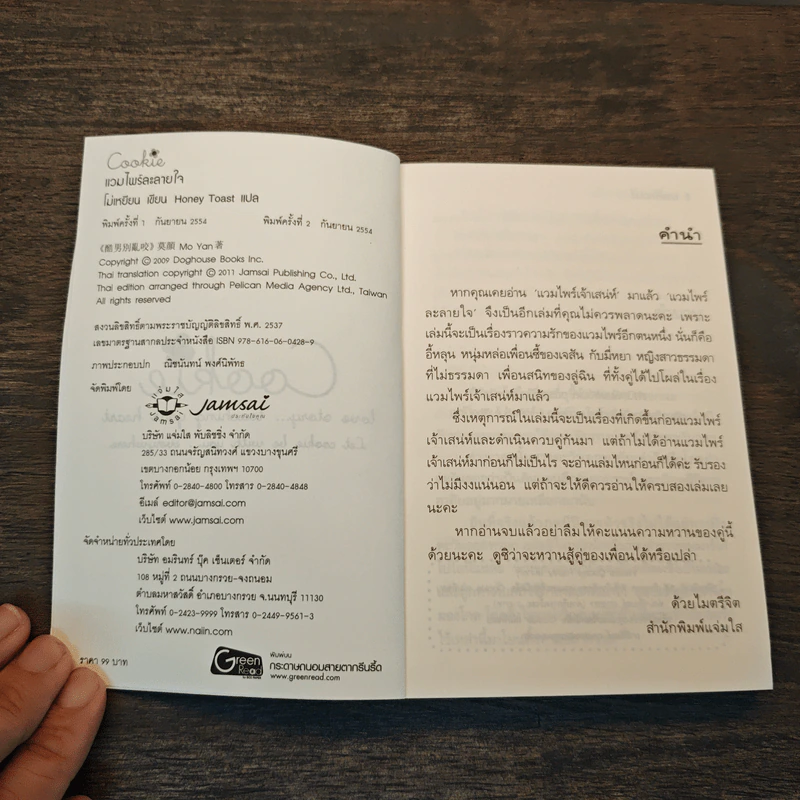 Cookie
แวมไพร์ละลายใจ
โม่เหยียน เขียน Honey Toast แปล
พิมพ์ครั้งที่ 1 กันยายน 2554 พิมพ์ครั้งที่ 2 กันยายน 2554
《酷男別亂咬》莫顏 Mo Yan 著
Copyright © 2009 Doghouse Books Inc.
Thai translation copyright © 2011 Jamsai Publishing Co., Ltd.
Thai edition arranged through Pelican Media Agency Ltd., Taiwan
All rights reserved
สงวนลิขสิทธิ์ตามพระราชบัญญัติลิขสิทธิ์ พ.ศ. 2537
เลขมาตรฐานสากลประจำหนังสือ ISBN 978-616-06-0428-9
ภาพประกอบปก ณิชนันทน์ พงศ์นิพัทธ
จัดพิมพ์โดย
แจ่มใส
JAMSAI
Jamsai
บริษัท แจ่มใส พับลิชชิ่ง จำกัด
285/33 ถนนจรัญสนิทวงศ์ แขวงบางขุนศรี
เขตบางกอกน้อย กรุงเทพฯ 10700
โทรศัพท์ 0-2840-4800 โทรสาร 0-2840-4848
อีเมล์ editor@jamsai.com
เว็บไซต์ www.jamsai.com
จัดจำหน่ายทั่วประเทศโดย
บริษัท อมรินทร์ บุ๊ค เซ็นเตอร์ จำกัด
108 หมู่ที่ 2 ถนนบางกรวย-จงถนอม
ตำบลมหาสวัสดิ์ อำเภอบางกรวย จ.นนทบุรี 11130
โทรศัพท์ 0-2423-9999 โทรสาร 0-2449-9561-3
เว็บไซต์ www.naiin.com
ราคา 99 บาท
Green Read
พิมพ์บน
กระดาษถนอมสายตากรีนรี้ด
www.greenread.com
คำนำ
หากคุณเคยอ่าน ‘แวมไพร์เจ้าเสน่ห์’ มาแล้ว ‘แวมไพร์
ละลายใจ’ จึงเป็นอีกเล่มที่คุณไม่ควรพลาดนะคะ เพราะ
เล่มนี้จะเป็นเรื่องราวความรักของแวมไพร์อีกตนหนึ่ง นั่นก็คือ
อี้หลุน หนุ่มหล่อเพื่อนซี้ของเจสัน กับมี่หยา หญิงสาวธรรมดา
ที่ไม่ธรรมดา เพื่อนสนิทของลู่ฉิน ที่ทั้งคู่ได้ไปโผล่ในเรื่อง
แวมไพร์เจ้าเสน่ห์มาแล้ว
ซึ่งเหตุการณ์ในเล่มนี้จะเป็นเรื่องที่เกิดขึ้นก่อนแวมไพร์
เจ้าเสน่ห์และดำเนินควบคู่กันมา แต่ถ้าไม่ได้อ่านแวมไพร์
เจ้าเสน่ห์มาก่อนก็ไม่เป็นไร จะอ่านเล่มไหนก่อนก็ได้ค่ะ รับรอง
ว่าไม่มีงงแน่นอน แต่ถ้าจะให้ดีควรอ่านให้ครบสองเล่มเลย
นะคะ
หากอ่านจบแล้วอย่าลืมให้คะแนนความหวานของคู่นี้
ด้วยนะคะ ดูซิว่าจะหวานสู้คู่ของเพื่อนได้หรือเปล่า
ด้วยไมตรีจิต
สำนักพิมพ์แจ่มใส